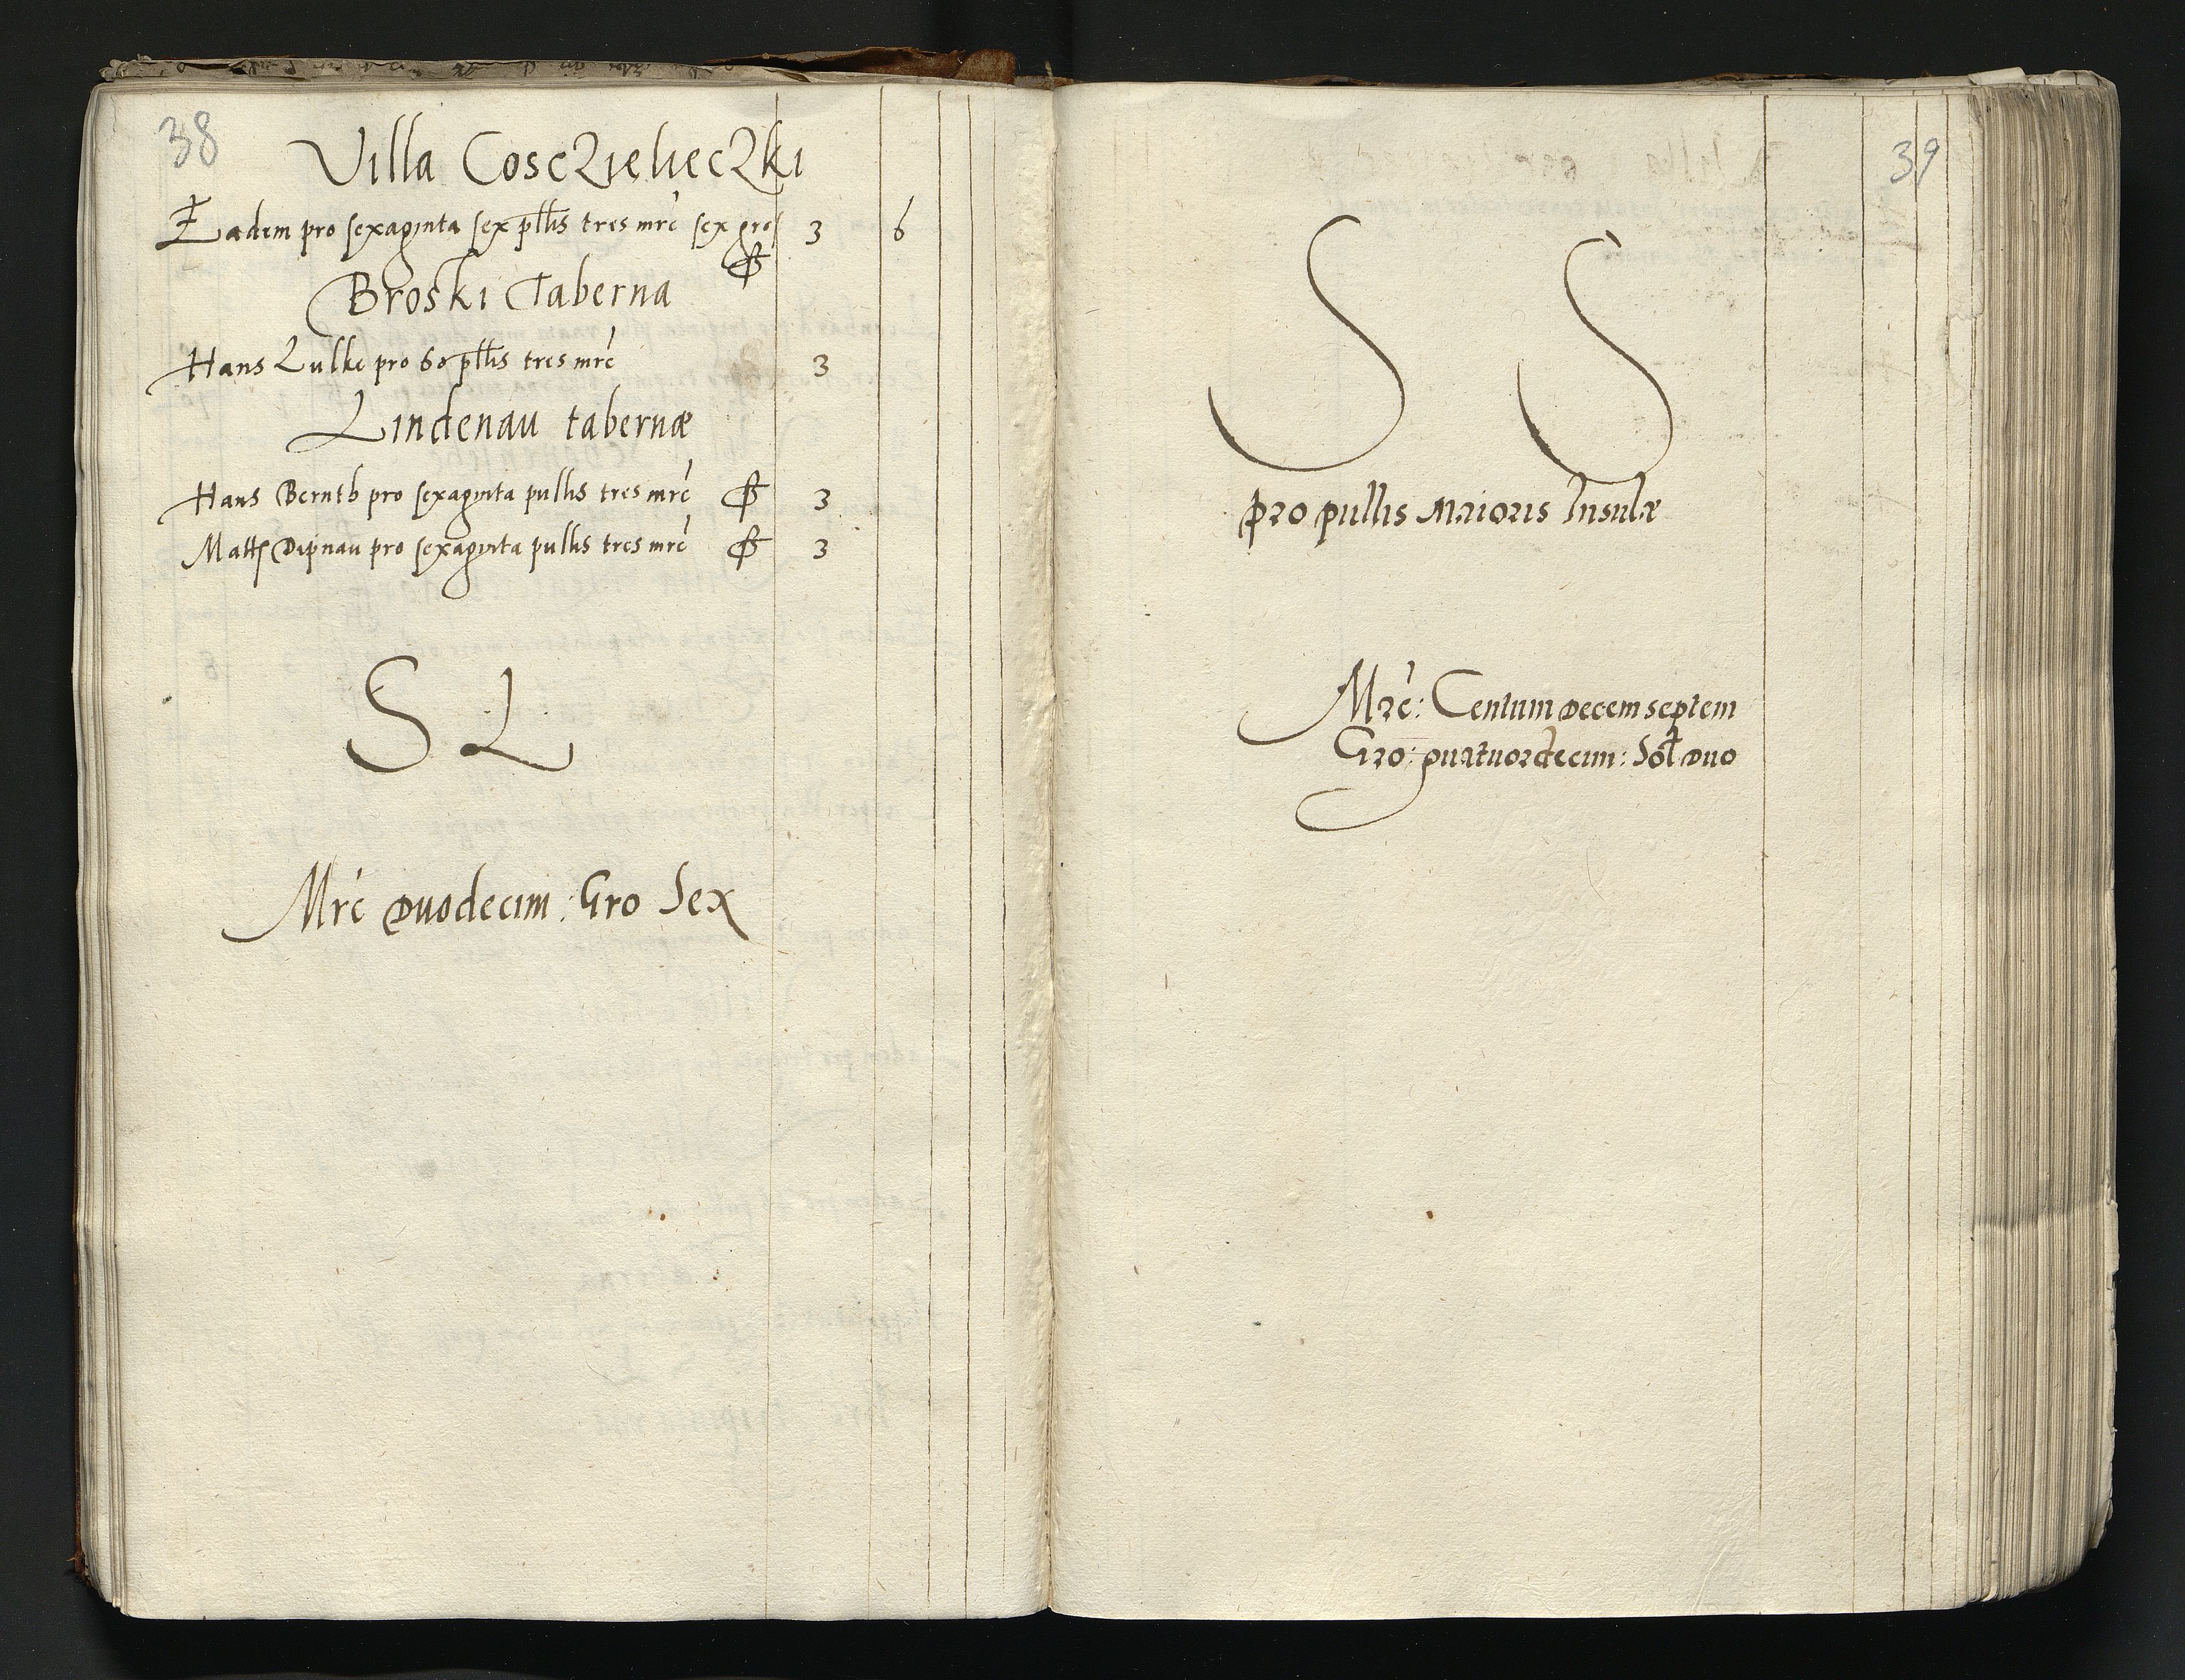 38
Villa Cosczielieczki
Eadem pro sexaginta sex pllis tres mrc sex gros 3 6
Broski Taberna
Hans Lulke pro 60 pllis tres mrc 3
Lindenau tabernæ
Hans Berntb pro sexaginta pullis tres mrc 3
Matts Dipnau pro sexaginta pullis tres mrc 3
S L
Mrc Duodecim : Gro Sex
39
S S
pro pullis Maioris Insulæ
Mrc: Centum Decem septem
Gro: quatuordecim: Sol Duo